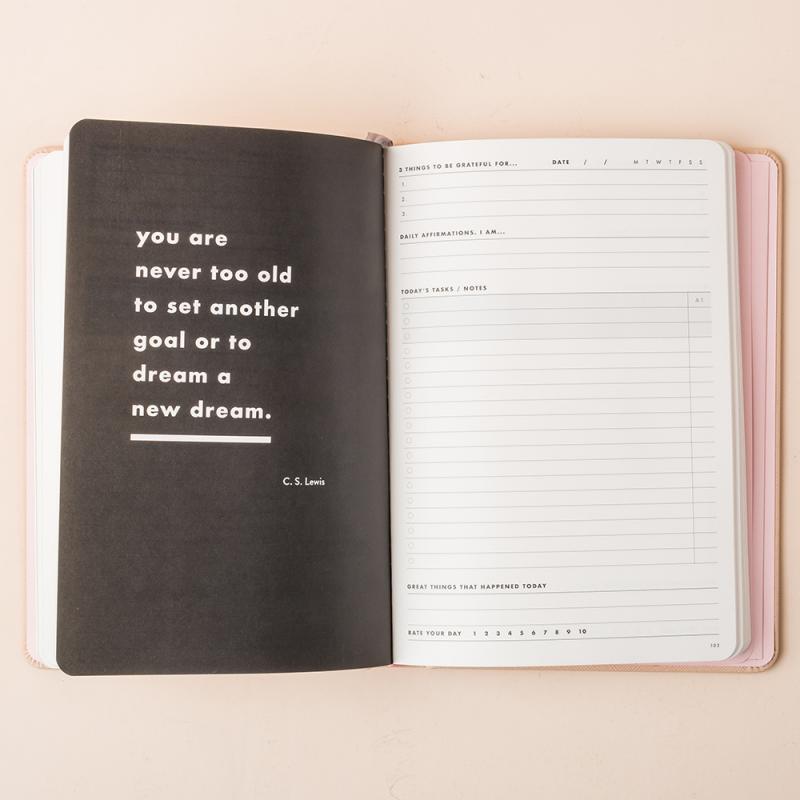 you are
never too old
to set another
goal or to
dream a
new dream.
C. S. Lewis
3 THINGS TO BE GRATEFUL FOR... DATE / / M T W T F S S
1.
2.
3.
DAILY AFFIRMATIONS. I AM...
TODAY'S TASKS / NOTES
GREAT THINGS THAT HAPPENED TODAY
RATE YOUR DAY 1 2 3 4 5 6 7 8 9 10